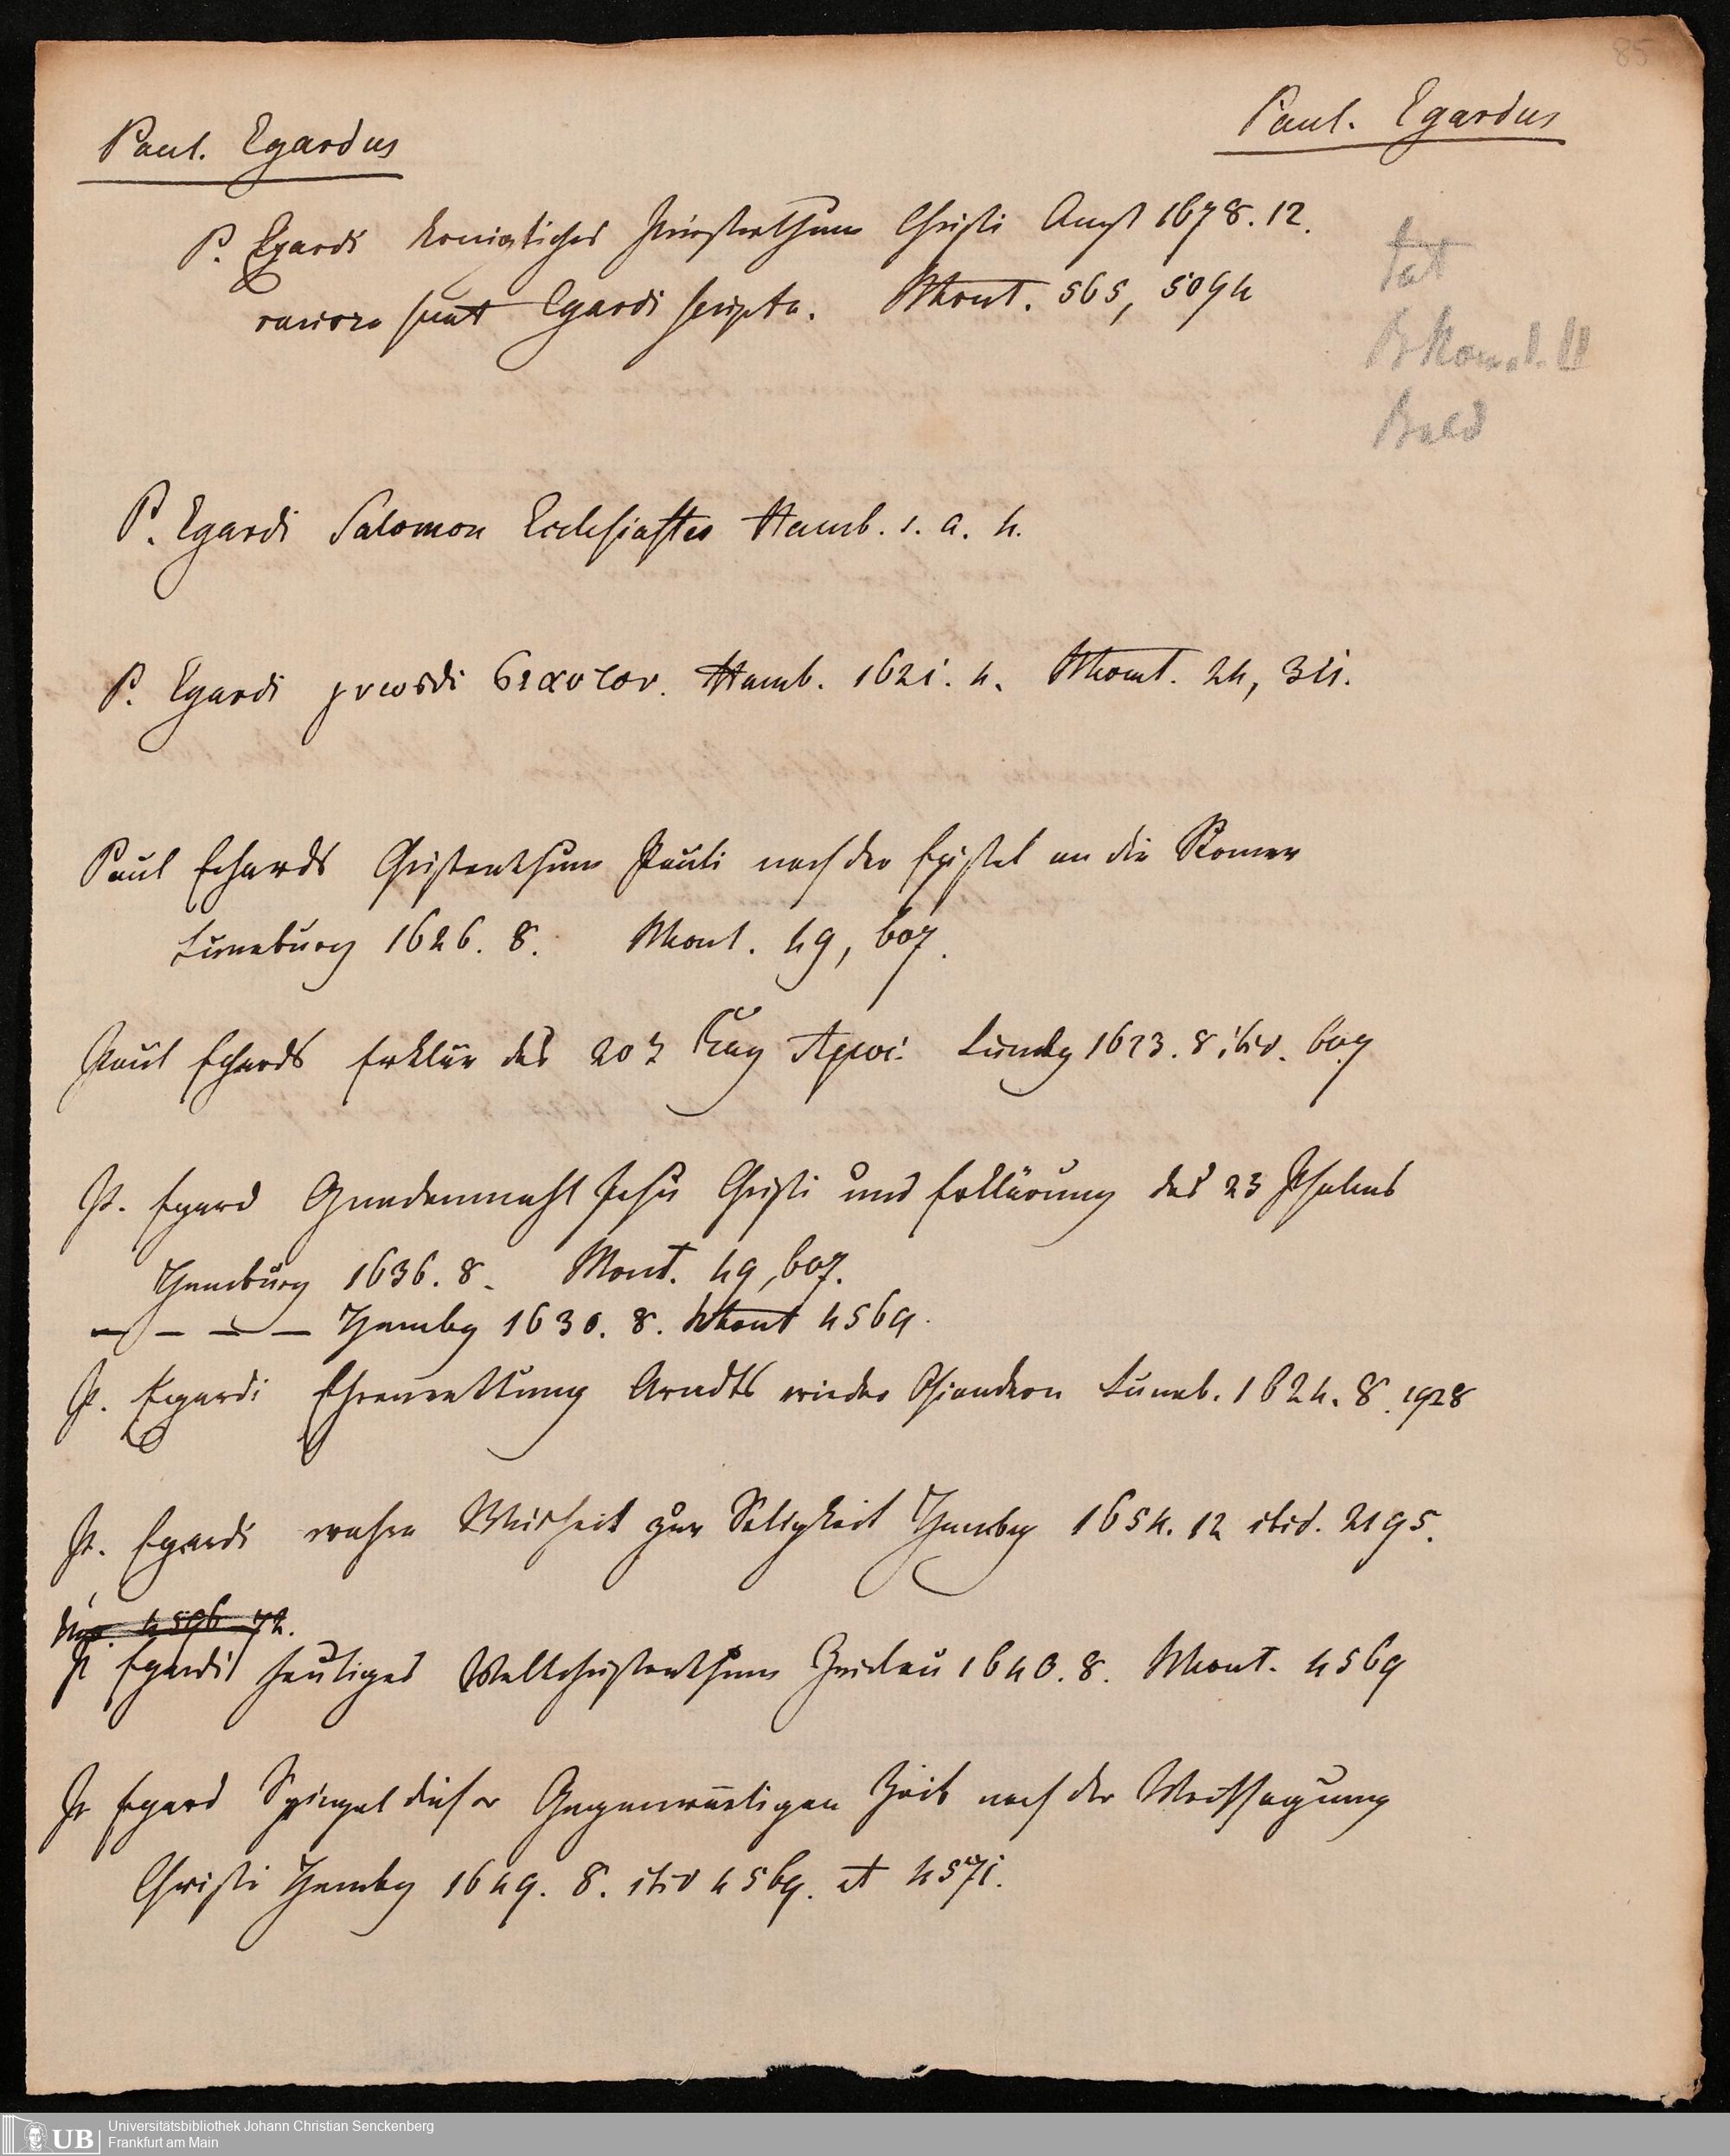 85
Paul. Egardus
Paul. Egardus
P. Egardi königliches Priesterthum Christi Augst 1678. 12.
rariora sunt Egardi scripta. Mhont. 565, 5094
tat
Bald
P. Egardi Salomon Ecclesiastes Hamb. s. a. 4.
P. Egardi γνωθι σεαυτον. Hamb. 1621. 4. Mhont. 24, 311.
Paul Echards Christenthum Pauli nach der Epistel an die Römer
Luneburg 1626. 8. Mhont. 49, 607.
Paul Echards Erklär des 20 Cap Apoc: Lunebg 1623. 8. ibid. 607
P. Egard Gnadenmahl Jesu Christi und Erklärung des 23 Psalms
Hamburg 1636. 8. Mont. 49, 607.
— — — — Hambg 1630. 8. Mhont 4569.
P. Egardi Ehrenrettung Arndts wieder Osiandern Luneb. 1624. 8. 1928
P. Egardi wahre Weisheit zur Seligkeit Hambg 1654. 12 ibid. 2195.
4596 72.
P Egardi heutiges Weltchristenthum Zwickau 1640. 8. Mhont. 4569
P Egard Spiegel dieser Gegenwärtigen Zeit nach der Weissagung
Christi Hambg 1649. 8. ibid 4569. et 4571.
UB Universitätsbibliothek Johann Christian Senckenberg
Frankfurt am Main